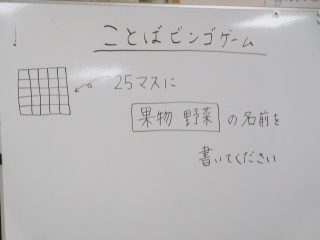 ことばビンゴゲーム
25マスに
果物・野菜の名前を
書いてください